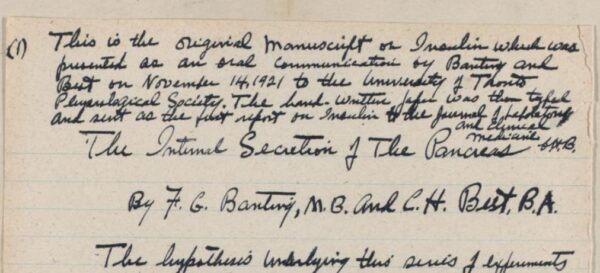 (1) This is the original Manuscript on Insulin which was
presented as an oral communication by Banting and
Best on November 14, 1921 to the University of Toronto
Physiological Society. The hand-written paper was then typed
and sent as the first report on Insulin to the Journal of Laboratory
and Clinical
Medicine C.H.B.
The Internal Secretion of The Pancreas
By F. G. Banting, M.B. and C. H. Best, B.A.
The hypothesis underlying this series of experiments